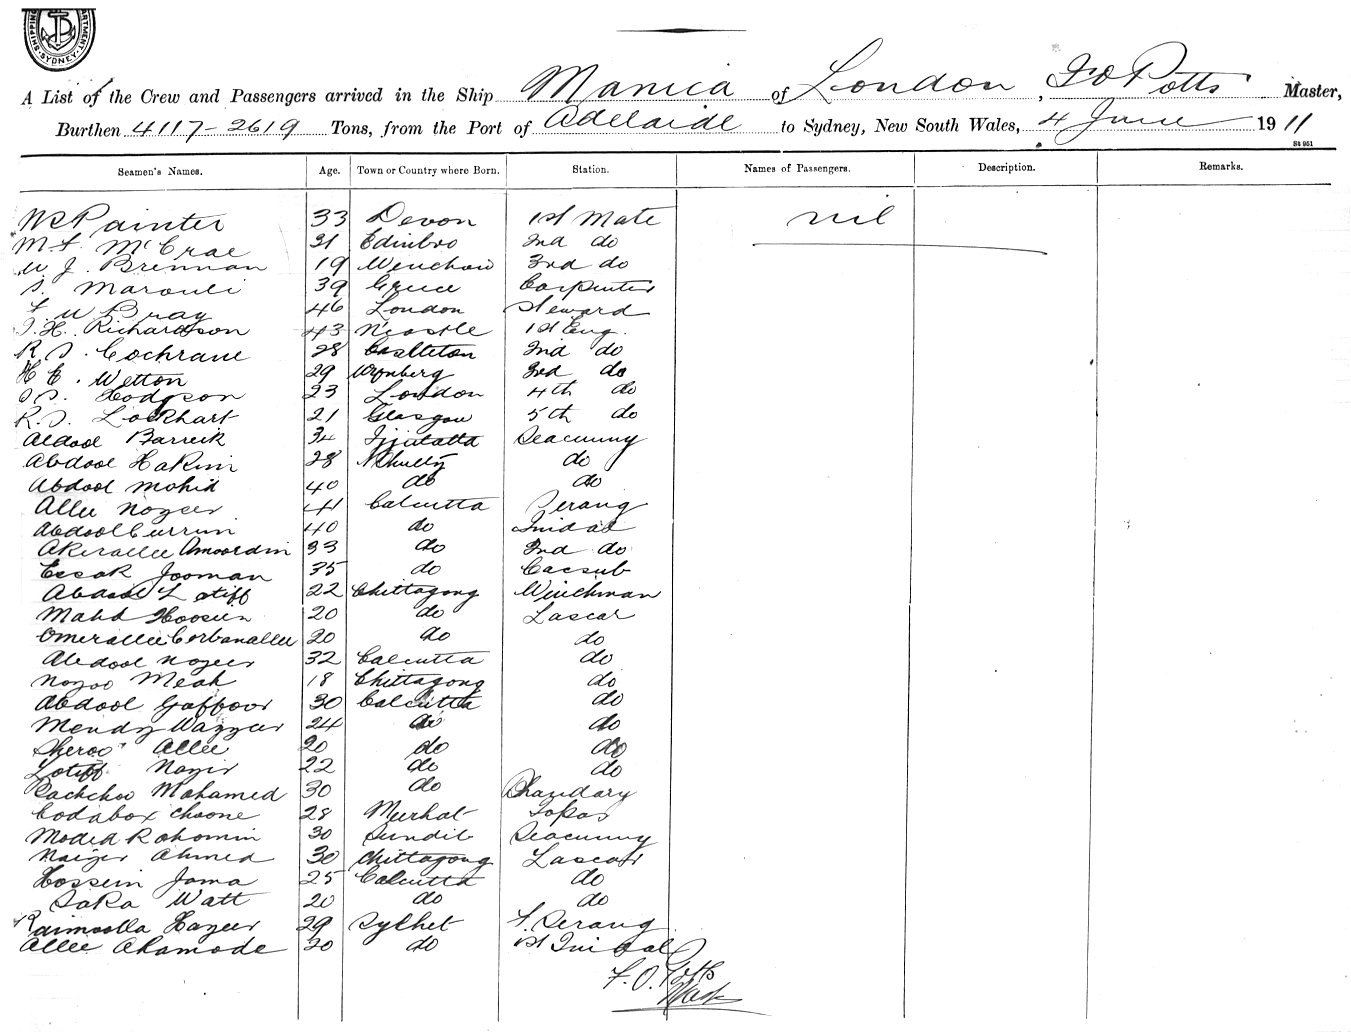 DEPARTMENT SHIPPING SYDNEY
A List of the Crew and Passengers arrived in the Ship Manica of London, F O Potts Master,
Burthen 4117-2619 Tons, from the Port of Adelaide to Sydney, New South Wales, 4 June 1911
St 951
Seamen's Names. Age. Town or Country where Born. Station. Names of Passengers. Description. Remarks.
Painter 33 Devon 1st Mate nil
McCrae 31 Edinbro 2nd do
J. Brennan 19 3rd do
39 Greece Carpenter
Bray 46 London Steward
H. Richardson 43 N'castle 1st Eng.
R. S. Cochrane 28 Castleton 2nd do
H E. Wetton 29 Wynberg 3rd do
Hodgson 23 London 4th do
R. S. Lockhart 21 Glasgow 5th do
Abdool Barreek 34 Seacunny
Abdool Hakim 28 do
Abdool Mohid 40 do do
Allee Nozeer 41 Calcutta Serang
Abdool Currim 40 do Tindal
Akerallee Amoordin 33 do 2nd do
Essak Jooman 35 do Cassub
Abdool Latiff 22 Chittagong Winchman
Mahd Hoosein 20 do Lascar
Omerallee Corbanallee 20 do do
Abdool Nozeer 32 Calcutta do
Nozoo Meah 18 Chittagong do
Abdool Gaffoor 30 Calcutta do
Mendy Wazzeer 24 do do
Sheroo Allee 20 do do
Lotiff Nazir 22 do do
Bachchoo Mahamed 30 do Bhandary
Codabox Choone 28 Topas
Moded Rohomin 30 Sundib Seacunny
Naizer Ahmed 30 Chittagong Lascar
Hossein Jama 25 Calcutta do
Saka Watt 20 do do
Raimoolla Hazeer 29 Sylhet F. Serang
Allee Ahamode 20 do 1st Tindal
F. O. Potts
Mast